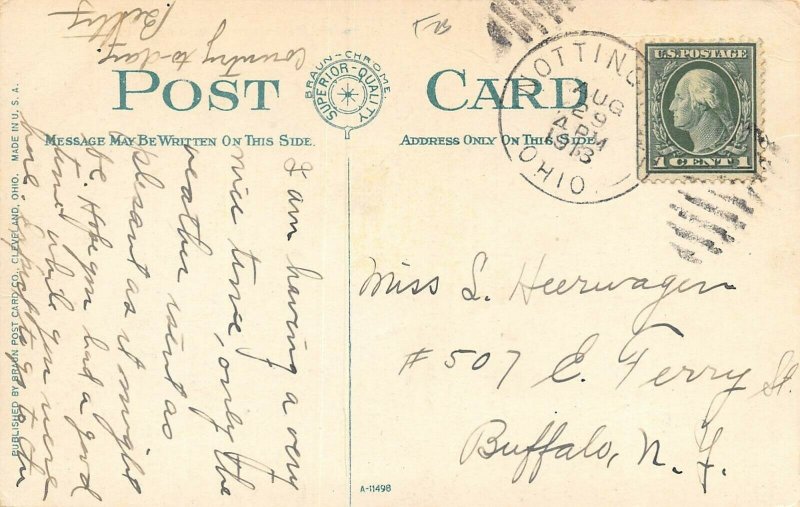 POST CARD
BRAUN-CHROME
SUPERIOR-QUALITY
MESSAGE MAY BE WRITTEN ON THIS SIDE.
ADDRESS ONLY ON THIS SIDE.
I am having a very
nice time, only the
weather isn't as
pleasant as it might
be. Hope you had a good
time while you were
here. Expect to go to the
country to-day
Betty
NOTTING
AUG
29
4 PM
1913
OHIO
U.S. POSTAGE
1 CENT 1
Miss L. Heerwagen
# 507 E. Ferry St.
Buffalo, N. Y.
PUBLISHED BY BRAUN POST CARD CO., CLEVELAND, OHIO. MADE IN U. S. A.
A-11498